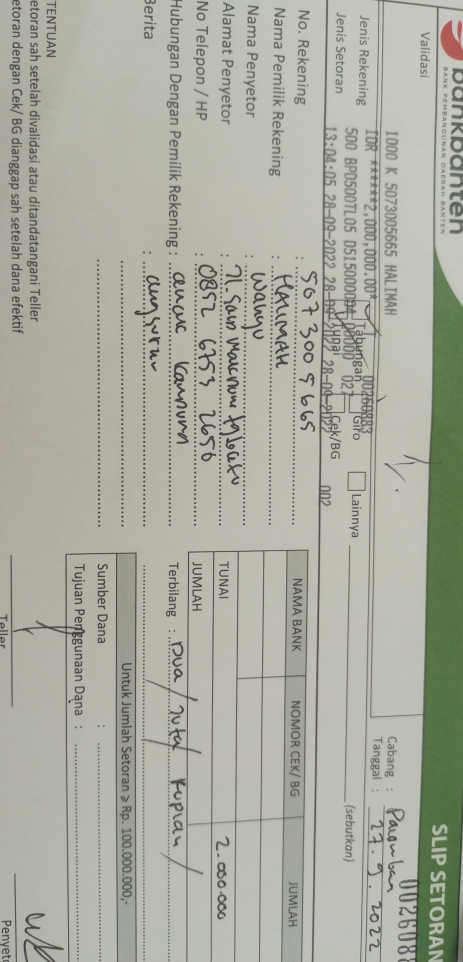 bankbanten
BANK PEMBANGUNAN DAERAH BANTEN
SLIP SETORAN
Validasi
1000 K 5073005665 HALIMAH
IDR ******2,000,000.00*
00260883
500 BPD500TL05 0515000004 00000 027
13:04:05 28-09-2022 28-09-2022 28-09-2022 002
Cabang :
Tanggal : 27.9.2022
Jenis Rekening
Tabungan
Giro
Lainnya
(sebutkan)
Jenis Setoran
Tunai
Cek/BG
No. Rekening : 5073005665
Nama Pemilik Rekening : HALIMAH
Nama Penyetor : Wahyu
Alamat Penyetor : Jl.
No Telepon / HP : 0852 6753 2650
Hubungan Dengan Pemilik Rekening :
Berita : angsuran
NAMA BANK
NOMOR CEK/ BG
JUMLAH
TUNAI
2.000.000
JUMLAH
Terbilang : Dua / Juta / Rupiah /
Untuk Jumlah Setoran ≥ Rp. 100.000.000,-
Sumber Dana :
Tujuan Penggunaan Dana :
TENTUAN
etoran sah setelah divalidasi atau ditandatangani Teller
etoran dengan Cek/ BG dianggap sah setelah dana efektif
Teller
Penyeto